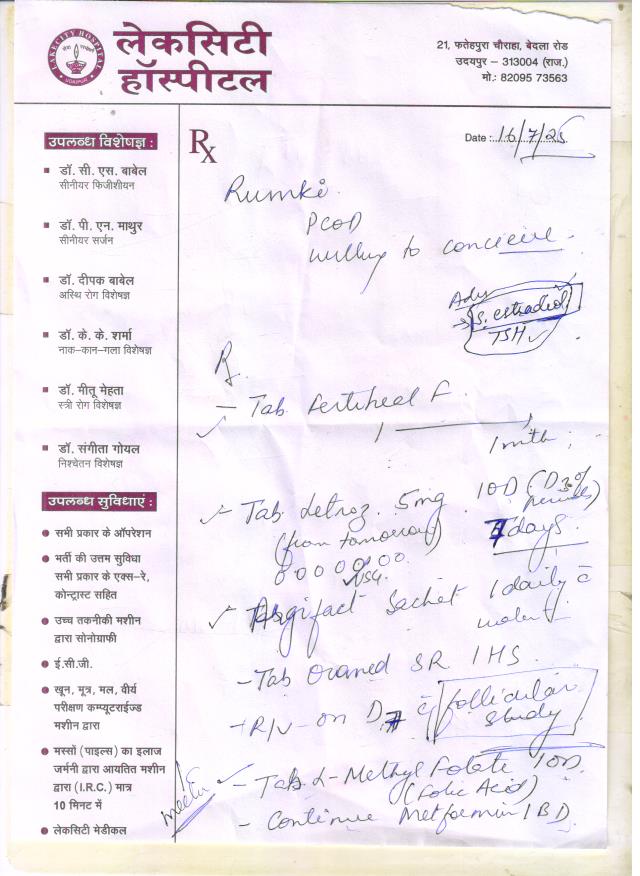 LAKECITY HOSPITAL
UDAIPUR
लेकसिटी
हॉस्पीटल
21, फतेहपुरा चौराहा, बेदला रोड
उदयपुर – 313004 (राज.)
मो.: 82095 73563
उपलब्ध विशेषज्ञ :
डॉ. सी. एस. बाबेल
सीनीयर फिजीशीयन
डॉ. पी. एन. माथुर
सीनीयर सर्जन
डॉ. दीपक बाबेल
अस्थि रोग विशेषज्ञ
डॉ. के. के. शर्मा
नाक–कान–गला विशेषज्ञ
डॉ. मीतू मेहता
स्त्री रोग विशेषज्ञ
डॉ. संगीता गोयल
निश्चेतन विशेषज्ञ
उपलब्ध सुविधाएं :
सभी प्रकार के ऑपरेशन
भर्ती की उत्तम सुविधा
सभी प्रकार के एक्स–रे,
कोन्ट्रास्ट सहित
उच्च तकनीकी मशीन
द्वारा सोनोग्राफी
ई.सी.जी.
खून, मूत्र, मल, वीर्य
परीक्षण कम्प्यूटराईज्ड
मशीन द्वारा
मस्सों (पाइल्स) का इलाज
जर्मनी द्वारा आयतित मशीन
द्वारा (I.R.C.) मात्र
10 मिनट में
लेकसिटी मेडीकल
Rx
Date : 16/7/25
Rumki
PCOD
willing to conceive
Adv
S. estradiol
TSH
R
– Tab Fertiheal F
1 mth
Tab Letroz 5mg 10D (D2 of
(from tomorrow) periods)
days
0 0 0 0 0 0 0
USG
Argifact Sachet 1 daily c̄
water
– Tab SR 1HS
R/V on D7 c̄ follicular
study
– Tab L-Methyl Folate 10D
(Folic Acid)
– Continue Metformin 1BD
Meetu